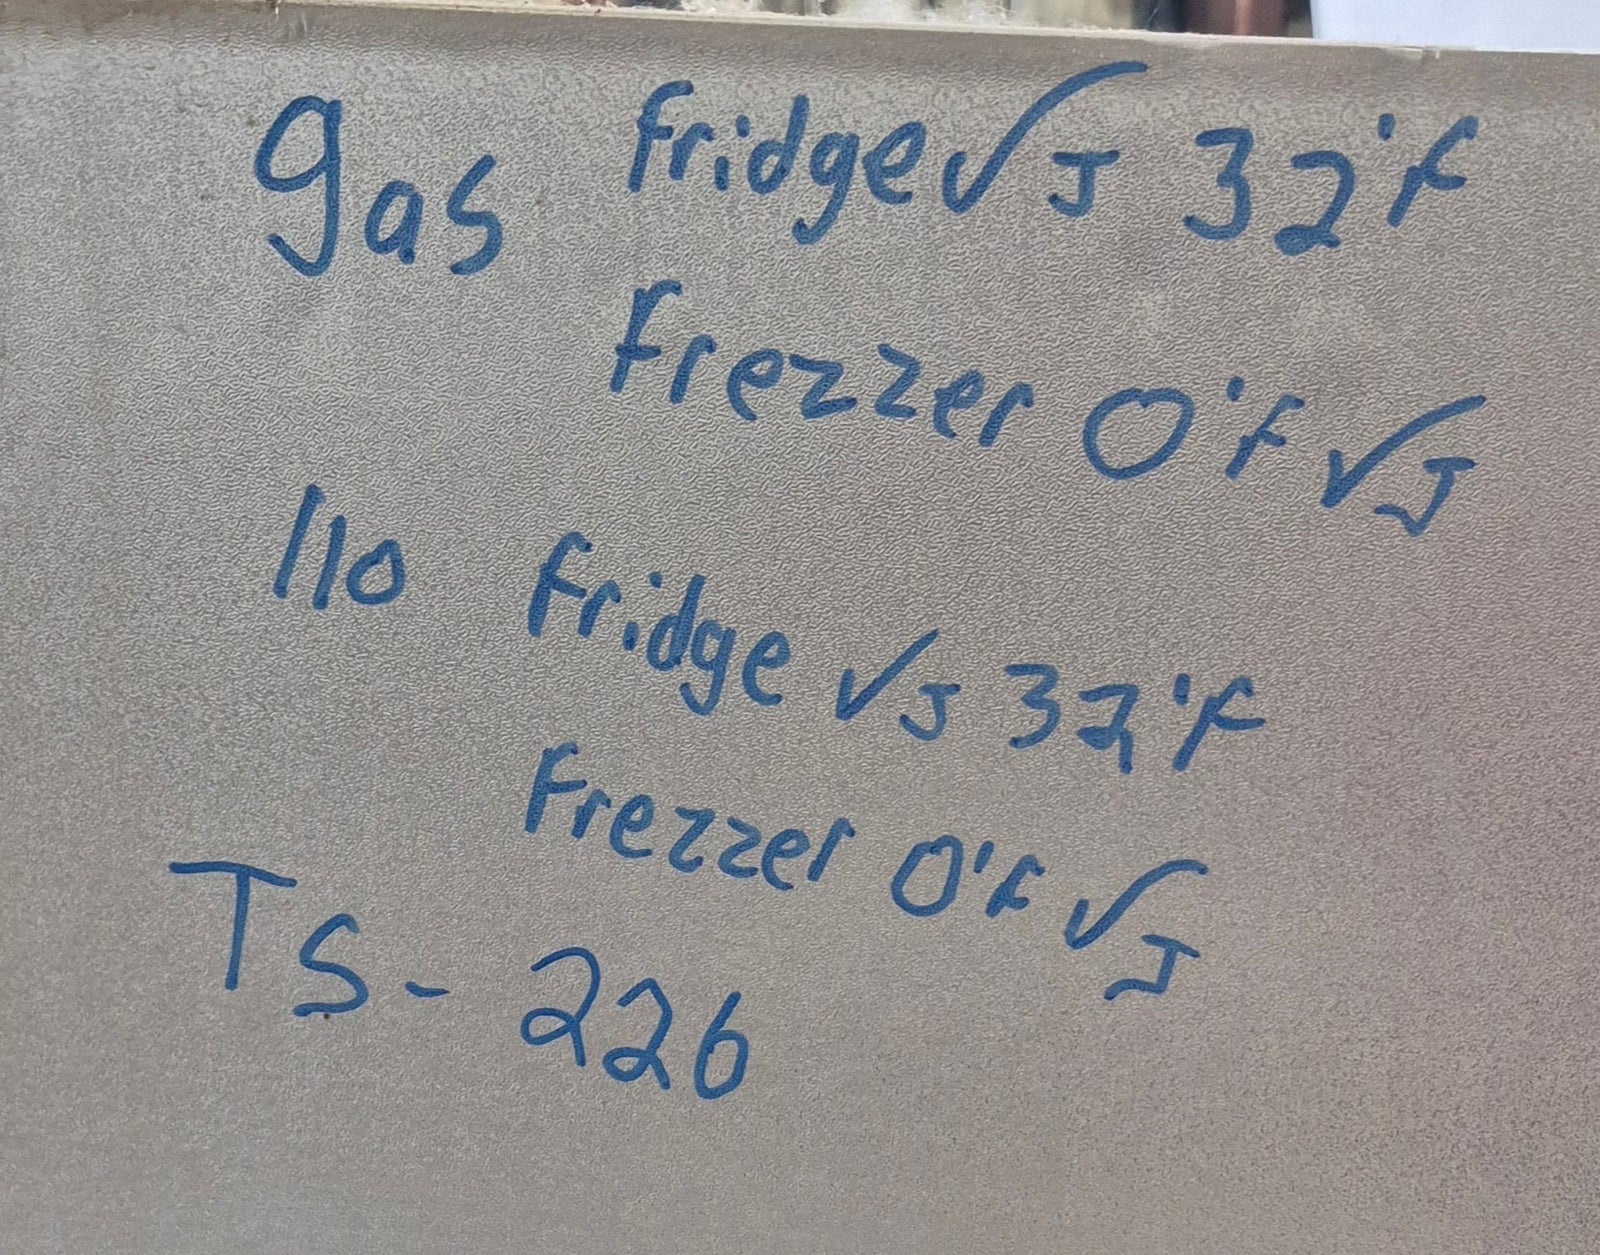 gas fridge ✓ J 32°f
Frezzer 0°f ✓ J
110 fridge ✓ J 32°f
Frezzer 0°f ✓ J
TS- 226